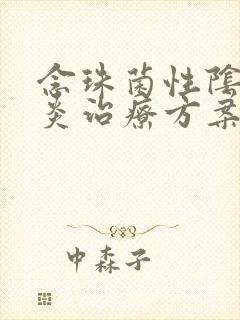 念珠菌性陰
炎治療方案
中森子